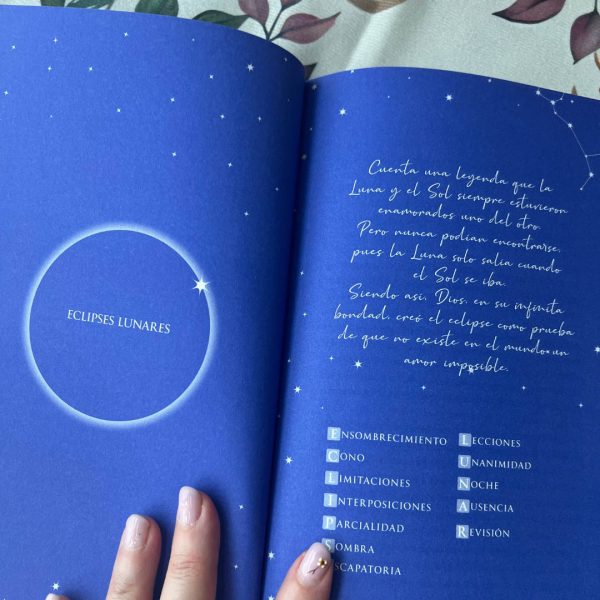 ECLIPSES LUNARES
Cuenta una leyenda que la
Luna y el Sol siempre estuvieron
enamorados uno del otro.
Pero nunca podían encontrarse,
pues la Luna solo salía cuando
el Sol se iba.
Siendo así, Dios, en su infinita
bondad, creó el eclipse como prueba
de que no existe en el mundo un
amor imposible.
ENSOMBRECIMIENTO
CONO
LIMITACIONES
INTERPOSICIONES
PARCIALIDAD
SOMBRA
SCAPATORIA
LECCIONES
UNANIMIDAD
NOCHE
AUSENCIA
REVISIÓN